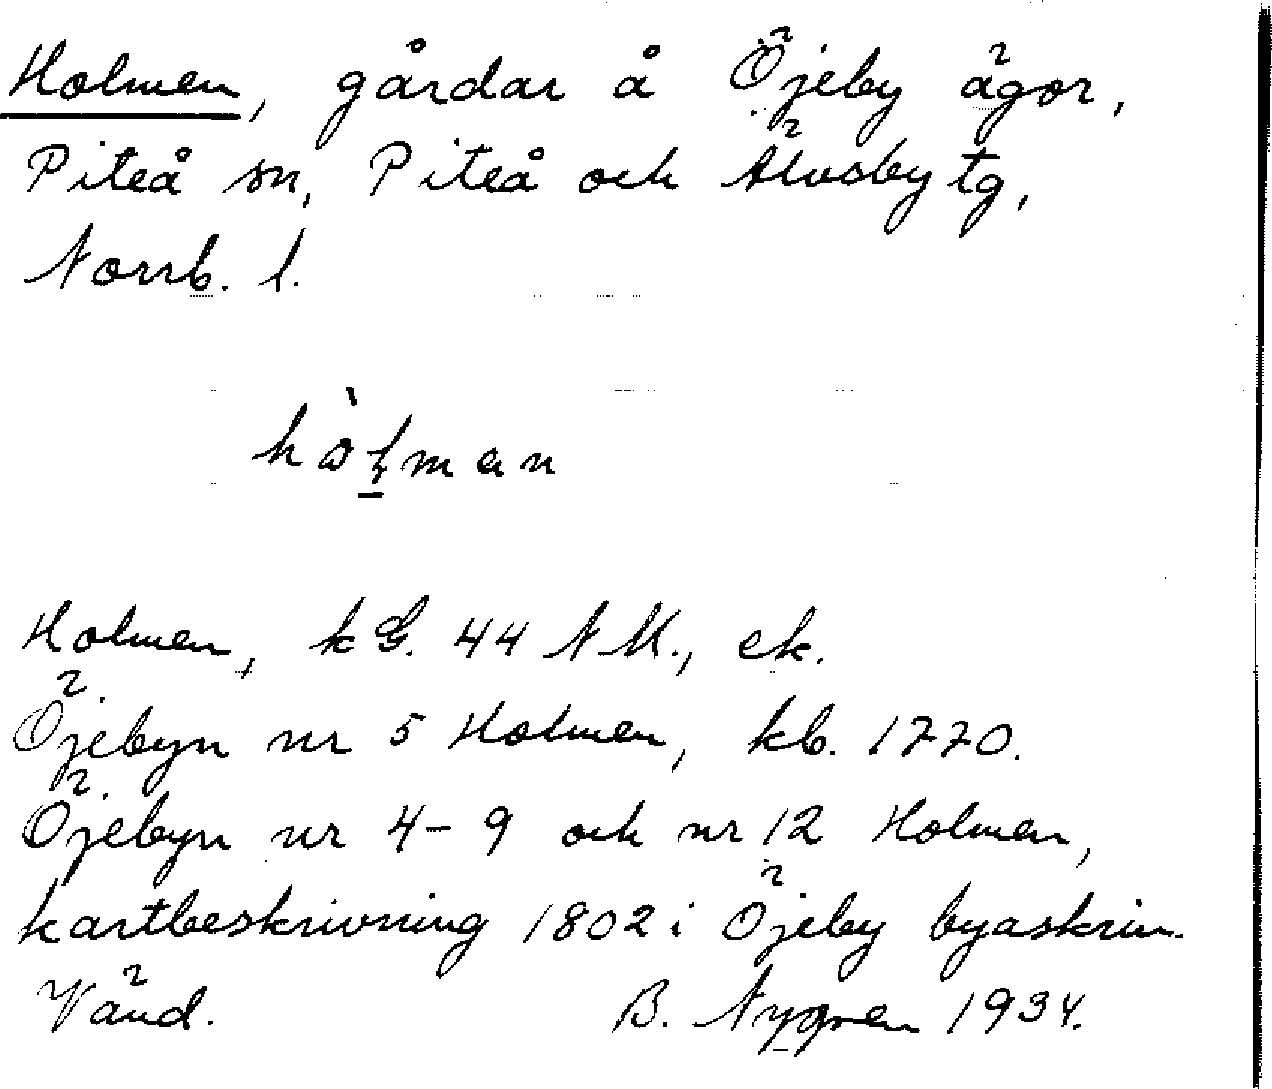 Holmen, gårdar å Öjeby ägor,
Piteå sn, Piteå och Älvsby tg,
Norrb. l.
hòḻman
Holmen, kG. 44 NM., ek.
Öjebyn nr 5 Holmen, kb. 1770.
Öjebyn nr 4-9 och nr 12 Holmen,
kartbeskrivning 1802 i Öjeby byaskrin.
Vänd. B. Nygren 1934.